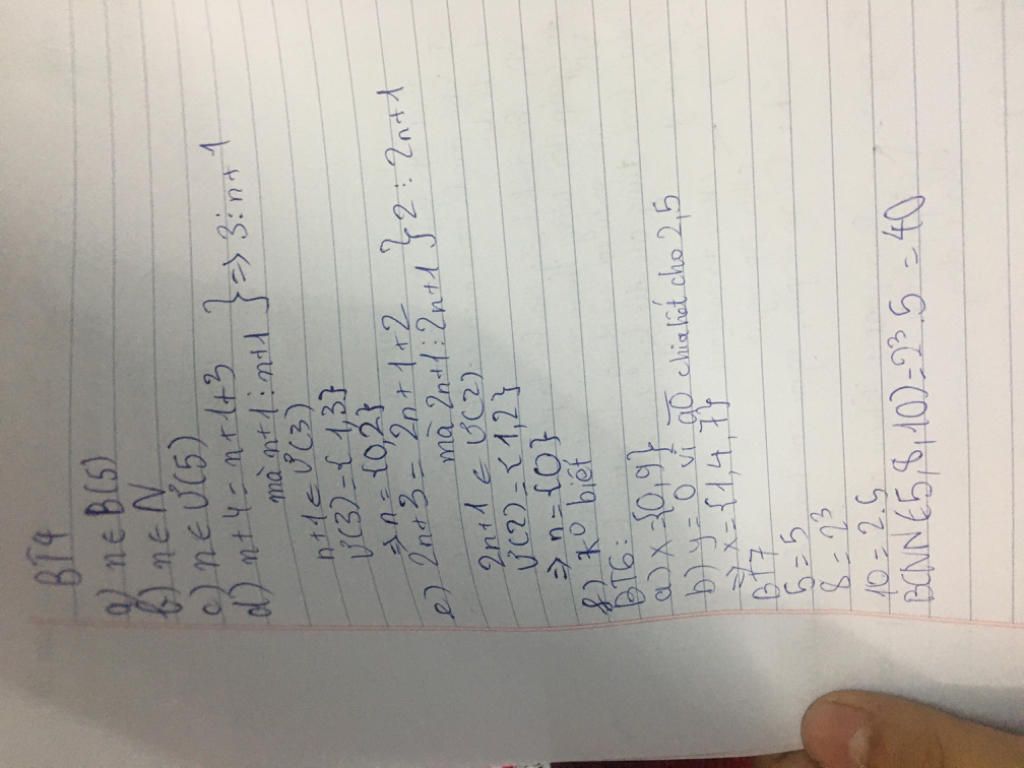 BT4
a) n ∈ B(5)
b) n ∈ N
c) n ∈ Ư(5)
d) n + 4 = n + 1 + 3 } => 3 ⋮ n + 1
mà n + 1 ⋮ n + 1
n + 1 ∈ Ư(3)
Ư(3) = {1, 3}
=> n = {0, 2}
e) 2n + 3 = 2n + 1 + 2 } 2 ⋮ 2n + 1
mà 2n + 1 ⋮ 2n + 1
2n + 1 ∈ Ư(2)
Ư(2) = {1, 2}
=> n = {0}
g) ko biết
BT6:
a) x = {0, 9}
b) y = 0 vì chia hết cho 2, 5
=> x = {1, 4, 7}
BT7
5 = 5
8 = 2³
10 = 2.5
BCNN(5, 8, 10) = 2³.5 = 40